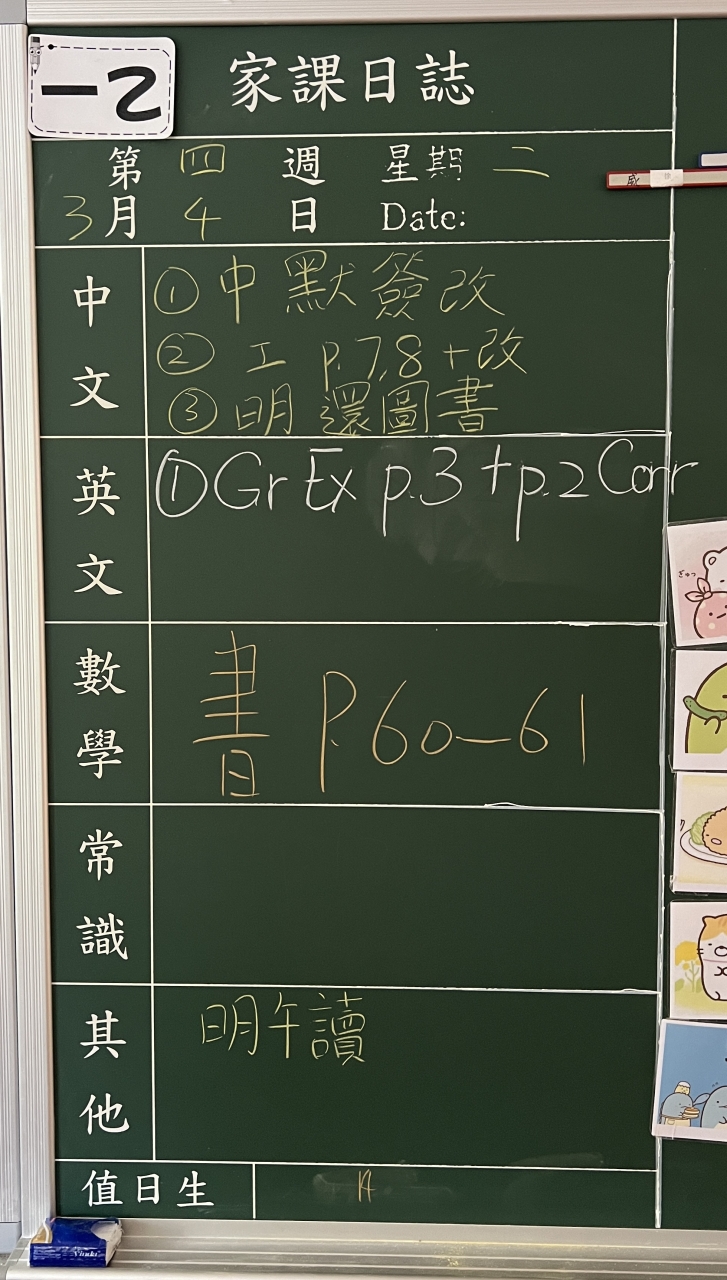 一乙
家課日誌
第 四 週 星期 二
3月 4 日 Date:
中文
①中默簽改
②工 p.7,8+改
③明還圖書
英文
①Gr Ex p.3 + p.2 Corr
數學
書 P.60—61
常識
其他
明午讀
值日生